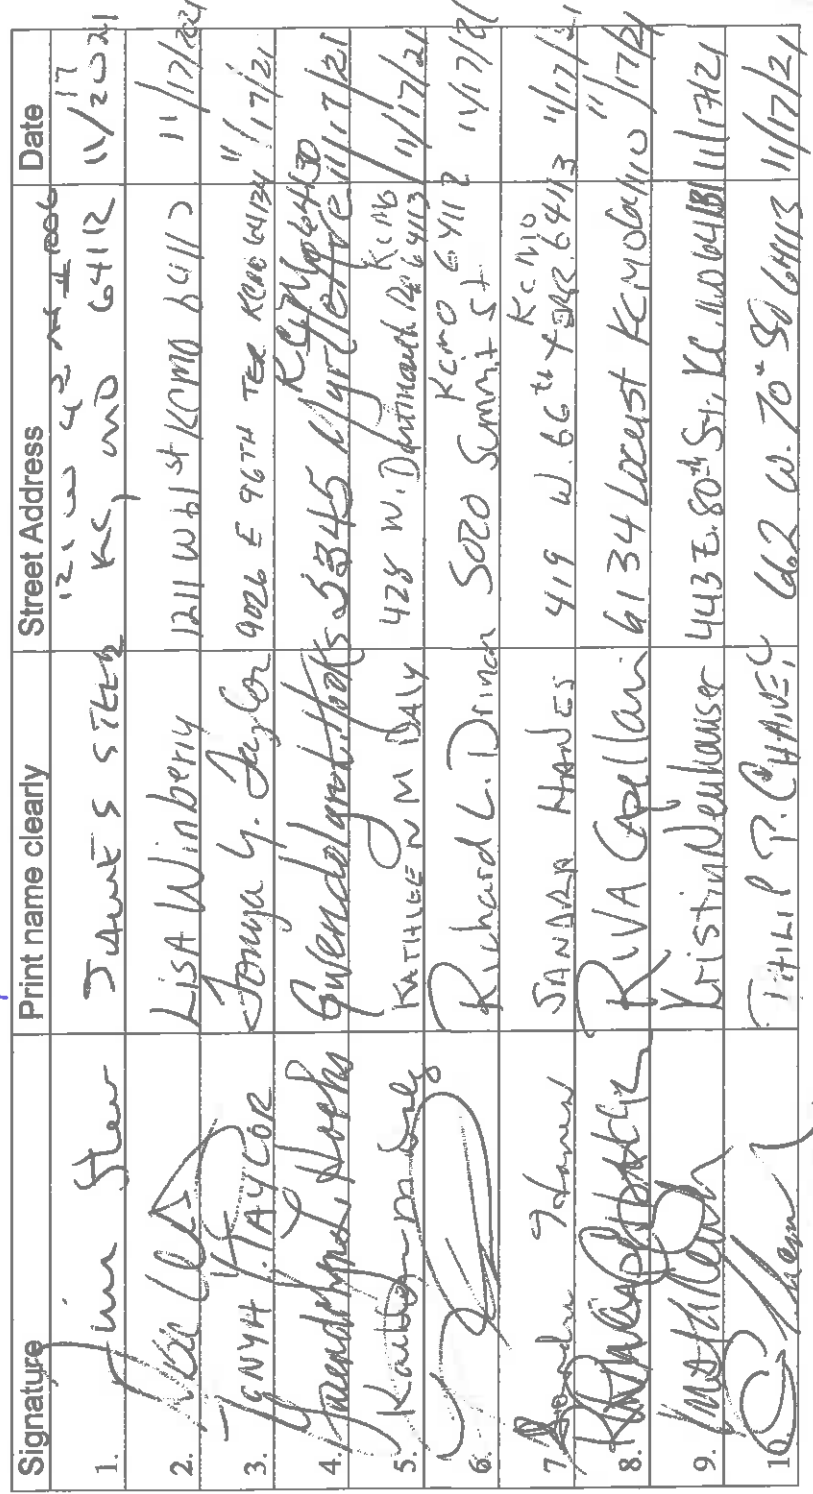 Signature Print name clearly Street Address Date
1. Jim Stew JAMES 121 W 42 KC, MO 64112 11/17/2021
2. LISA Winberry 1211 W 61st KCMO 64113 11/17/2021
3. TONYA Y. TAYLOR Tonya Y. Taylor 9026 E 96TH TER KCMO 64134 11/17/21
4. Gwendolyn L. Hooks Gwendolyn L. Hooks 5345 Myrtle Ave KC, Mo 64130 11/17/21
5. Kathleen M Daly KATHLEEN M DALY 428 W. Dartmouth Rd KCMO 64113 11/17/21
6. Richard L. Drinon 5020 Summit St KCMO 64112 11/17/21
7. Sandra Hanes SANDRA HANES 419 W. 66th KCMO 64113 11/17/21
8. RIVA Capellari 6134 Locust KCMO 64110 11/17/21
9. Kristin Neuhauser 443 E. 80th St, KC, MO 64131 11/17/21
10. PHILIP P. 662 W. 70th St 64113 11/17/21